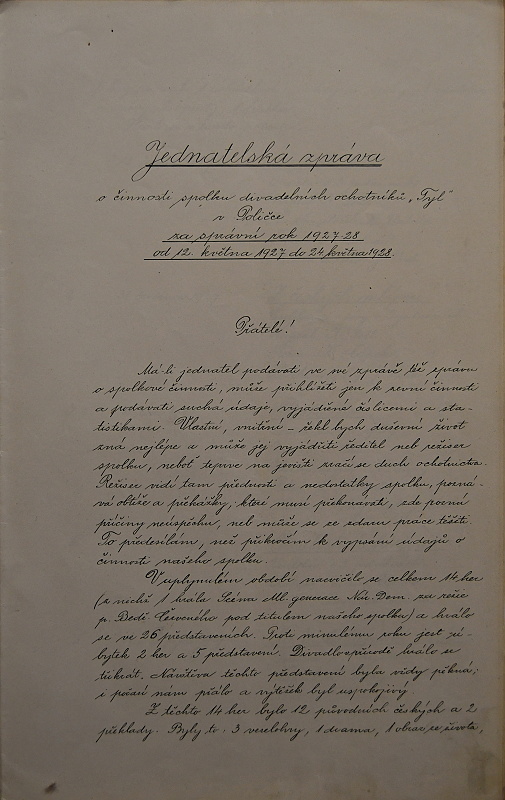 Jednatelská zpráva
o činnosti spolku divadelních ochotníků „Tyl“
v Poličce
za správní rok 1927-28
od 12. května 1927 do 24 května 1928.
Přátelé!
Má-li jednatel podávati ve své zprávě též zprávu
o spolkové činnosti, může přihlížeti jen k zevní činnosti
a podávati suchá údaje, vyjádřené číslicemi a sta-
tistikami. Vlastní, vnitřní – řekl bych duševní život
zná nejlépe a může jej vyjádřiti ředitel neb režisér
spolku, neboť teprve na jevišti zračí se duch ochotnictva.
Režisér vidí tam přednosti a nedostatky spolku, pozná-
vá obtíže a překážky, které musí překonávati, zde pozná
příčiny neúspěchu, neb může se ze zdaru práce těšiti.
To předesílám, než přikročím k vypsání údajů o
činnosti našeho spolku.
V uplynulém období nacvičilo se celkem 14 her
(z nichž 1 hrála Scéna Ml. generace Nár. Dem. za režie
p. Bedř. Červeného pod titulem našeho spolku) a hrálo
se ve 26 představeních. Proti minulému roku jest zú-
bytek 2 her a 5 představení. Divadlo v přírodě hrálo se
třikrát. Návštěva těchto představení byla vždy pěkná;
i počasí nám přálo a výtěžek byl uspokojivý.
Z těchto 14 her bylo 12 původních českých a 2
překlady. Byly to: 3 veselohry, 1 drama, 1 obraz ze života,